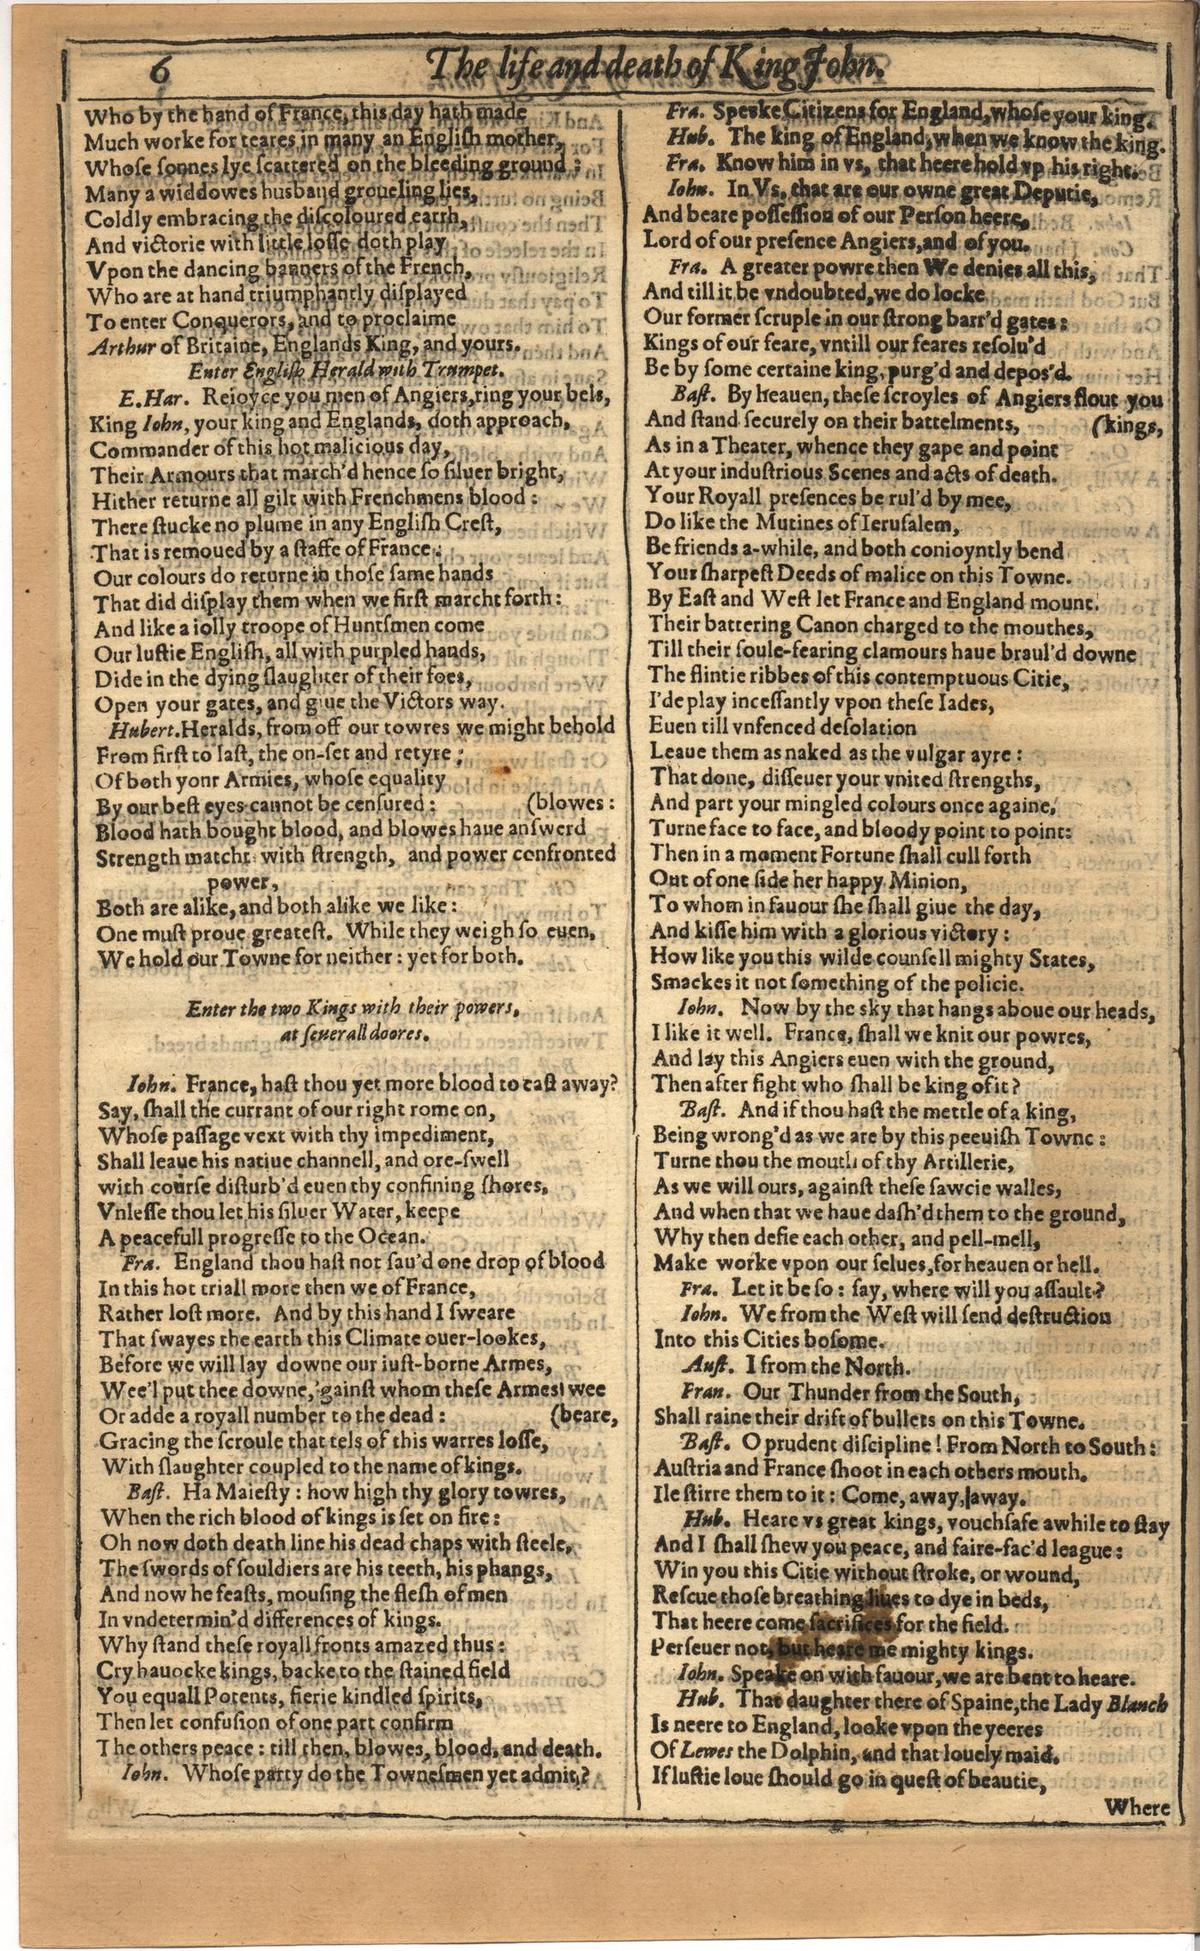 6
The life and death of King John.
Who by the hand of France, this day hath made
Much worke for teares in many an Engliſh mother,
Whoſe ſonnes lye ſcattered on the bleeding ground:
Many a widdowes husband groueling lies,
Coldly embracing the diſcoloured earth,
And victorie with little loſſe doth play
Vpon the dancing banners of the French,
Who are at hand triumphantly diſplayed
To enter Conquerors, and to proclaime
Arthur of Britaine, Englands King, and yours.
Enter Engliſh Herald with Trumpet.
E.Har. Reioyce you men of Angiers, ring your bels,
King Iohn, your king and Englands, doth approach,
Commander of this hot malicious day,
Their Armours that march'd hence ſo ſiluer bright,
Hither returne all gilt with Frenchmens blood:
There ſtucke no plume in any Engliſh Creſt,
That is remoued by a ſtaffe of France.
Our colours do returne in thoſe ſame hands
That did diſplay them when we firſt marcht forth:
And like a iolly troope of Huntſmen come
Our luſtie Engliſh, all with purpled hands,
Dide in the dying ſlaughter of their foes,
Open your gates, and giue the Victors way.
Hubert. Heralds, from off our towres we might behold
From firſt to laſt, the on-ſet and retyre;
Of both yonr Armies, whoſe equality
By our beſt eyes cannot be cenſured: (blowes:
Blood hath bought blood, and blowes haue anſwerd
Strength matcht with ſtrength, and power confronted
power,
Both are alike, and both alike we like:
One muſt proue greateſt. While they weigh ſo euen,
We hold our Towne for neither: yet for both.
Enter the two Kings with their powers,
at ſeuerall doores.
Iohn. France, haſt thou yet more blood to caſt away?
Say, ſhall the currant of our right rome on,
Whoſe paſſage vext with thy impediment,
Shall leaue his natiue channell, and ore-ſwell
with courſe diſturb'd euen thy confining ſhores,
Vnleſſe thou let his ſiluer Water, keepe
A peacefull progreſſe to the Ocean.
Fra. England thou haſt not ſau'd one drop of blood
In this hot triall more then we of France,
Rather loſt more. And by this hand I ſweare
That ſwayes the earth this Climate ouer-lookes,
Before we will lay downe our iuſt-borne Armes,
Wee'l put thee downe, 'gainſt whom theſe Armes wee
Or adde a royall number to the dead: (beare,
Gracing the ſcroule that tels of this warres loſſe,
With ſlaughter coupled to the name of kings.
Baſt. Ha Maieſty: how high thy glory towres,
When the rich blood of kings is ſet on fire:
Oh now doth death line his dead chaps with ſteele,
The ſwords of ſouldiers are his teeth, his phangs,
And now he feaſts, mouſing the fleſh of men
In vndetermin'd differences of kings.
Why ſtand theſe royall fronts amazed thus:
Cry hauocke kings, backe to the ſtained field
You equall Potents, fierie kindled ſpirits,
Then let confuſion of one part confirm
The others peace: till then, blowes, blood, and death.
Iohn. Whoſe party do the Towneſmen yet admit?
Fra. Speake Citizens for England, whoſe your king.
Hub. The king of England, when we know the king.
Fra. Know him in vs, that heere hold vp his right.
Iohn. In Vs, that are our owne great Deputie,
And beare poſſeſſion of our Perſon heere,
Lord of our preſence Angiers, and of you.
Fra. A greater powre then We denies all this,
And till it be vndoubted, we do locke
Our former ſcruple in our ſtrong barr'd gates:
Kings of our feare, vntill our feares reſolu'd
Be by ſome certaine king, purg'd and depos'd.
Baſt. By heauen, theſe ſcroyles of Angiers flout you
And ſtand ſecurely on their battelments, (kings,
As in a Theater, whence they gape and point
At your induſtrious Scenes and acts of death.
Your Royall preſences be rul'd by mee,
Do like the Mutines of Ieruſalem,
Be friends a-while, and both conioyntly bend
Your ſharpeſt Deeds of malice on this Towne.
By Eaſt and Weſt let France and England mount.
Their battering Canon charged to the mouthes,
Till their ſoule-fearing clamours haue braul'd downe
The flintie ribbes of this contemptuous Citie,
I'de play inceſſantly vpon theſe Iades,
Euen till vnfenced deſolation
Leaue them as naked as the vulgar ayre:
That done, diſſeuer your vnited ſtrengths,
And part your mingled colours once againe,
Turne face to face, and bloody point to point:
Then in a moment Fortune ſhall cull forth
Out of one ſide her happy Minion,
To whom in fauour ſhe ſhall giue the day,
And kiſſe him with a glorious victory:
How like you this wilde counſell mighty States,
Smackes it not ſomething of the policie.
Iohn. Now by the sky that hangs aboue our heads,
I like it well. France, ſhall we knit our powres,
And lay this Angiers euen with the ground,
Then after fight who ſhall be king of it?
Baſt. And if thou haſt the mettle of a king,
Being wrong'd as we are by this peeuiſh Towne:
Turne thou the mouth of thy Artillerie,
As we will ours, againſt theſe ſawcie walles,
And when that we haue daſh'd them to the ground,
Why then defie each other, and pell-mell,
Make worke vpon our ſelues, for heauen or hell.
Fra. Let it be ſo: ſay, where will you aſſault?
Iohn. We from the Weſt will ſend deſtruction
Into this Cities boſome.
Auſt. I from the North.
Fran. Our Thunder from the South,
Shall raine their drift of bullets on this Towne.
Baſt. O prudent diſcipline! From North to South:
Auſtria and France ſhoot in each others mouth.
Ile ſtirre them to it: Come, away, away.
Hub. Heare vs great kings, vouchſafe awhile to ſtay
And I ſhall ſhew you peace, and faire-fac'd league:
Win you this Citie without ſtroke, or wound,
Reſcue thoſe breathing liues to dye in beds,
That heere come ſacrifices for the field.
Perſeuer not, but heare me mighty kings.
Iohn. Speake on with fauour, we are bent to heare.
Hub. That daughter there of Spaine, the Lady Blanch
Is neere to England, looke vpon the yeeres
Of Lewes the Dolphin, and that louely maid.
If luſtie loue ſhould go in queſt of beautie,
Where